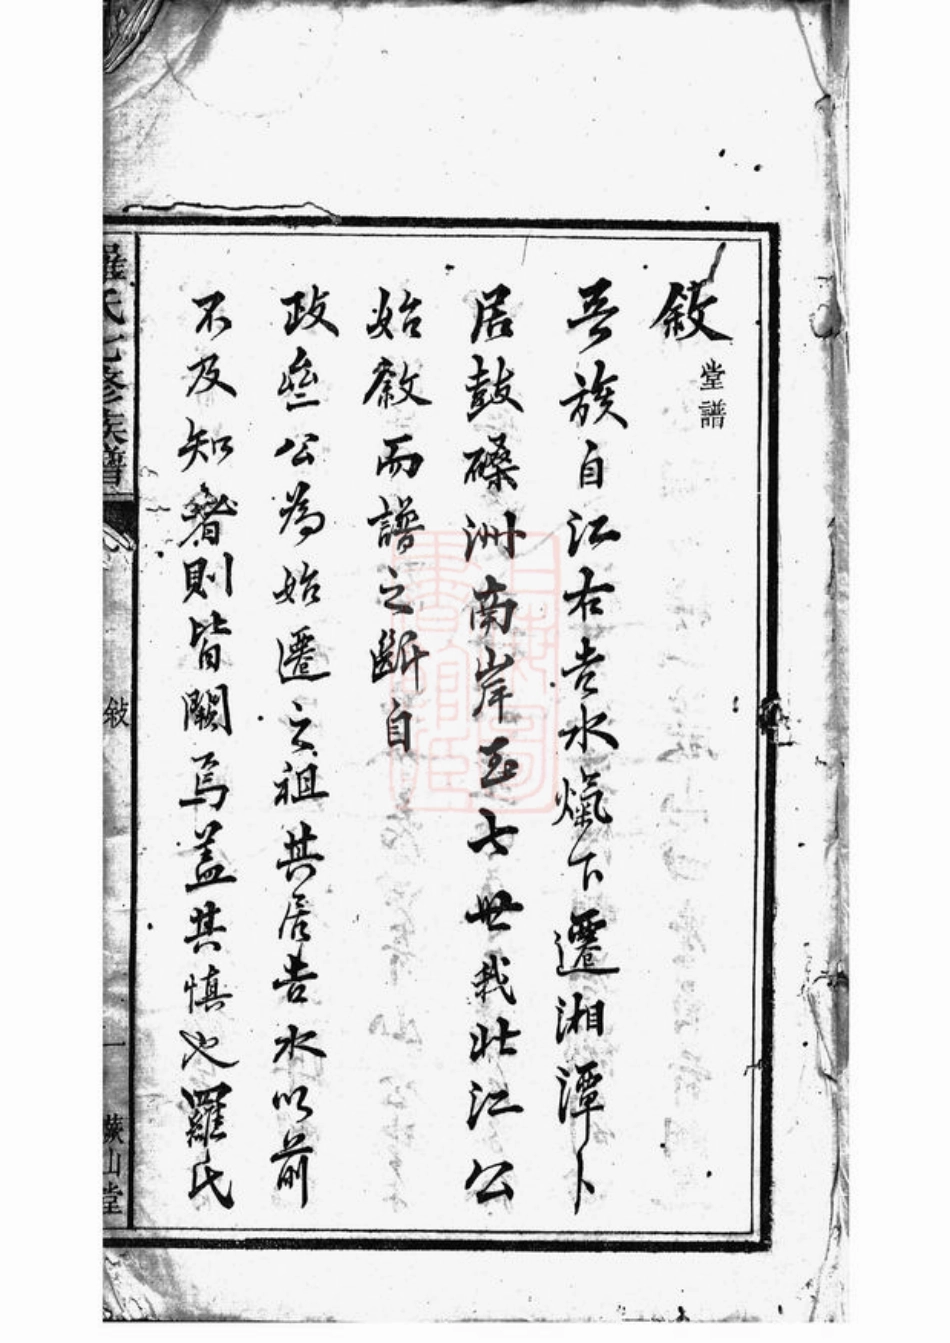 敘
堂譜
吾族自江右吉水爌下遷湘潭卜
居鼓磉洲南岸至七世我壯江公
始敘而譜之斷自
政叁公為始遷之祖其居吉水以前
不及知者則皆闕焉蓋其慎也羅氏
羅氏七修族譜
敘
一
蔌山堂